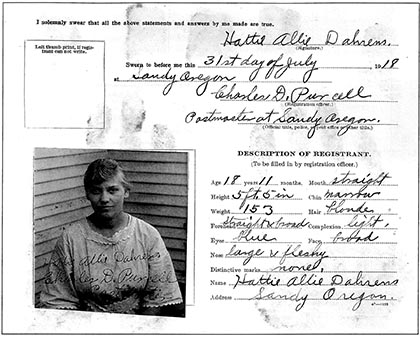 I solemnly swear that all the above statements and answers by me made are true.
Left thumb print, if registrant can not write.
Hattie Allie Dahrens.
(Signature.)
Sworn to before me this 31st day of July, 1918
at Sandy Oregon
Charles D. Purcell
(Registration officer.)
Postmaster at Sandy Oregon.
(Official title, police, or post office or other title.)
DESCRIPTION OF REGISTRANT.
(To be filled in by registration officer.)
Age 18 years 11 months. Mouth straight
Height 5 ft. 5 in Chin narrow
Weight 153 Hair blonde
Forehead straight & broad Complexion light,
Eyes blue Face broad
Nose large & fleshy
Distinctive marks none,
Name Hattie Allie Dahrens
Address Sandy Oregon.
Hattie Allie Dahrens
Charles D. Purcell